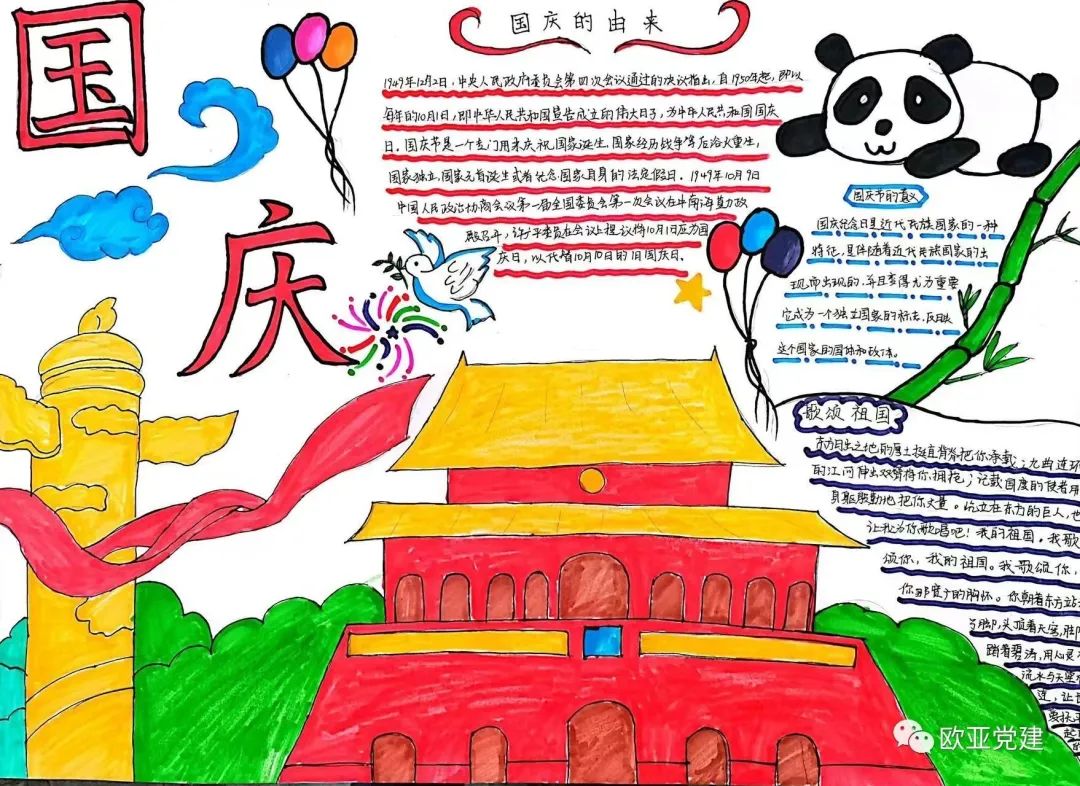 国
庆
国庆的由来
1949年12月2日,中央人民政府委员会第四次会议通过的决议指出,自1950年起,即以
每年的10月1日,即中华人民共和国宣告成立的伟大日子,为中华人民共和国国庆
日。国庆节是一个专门用来庆祝国家诞生,国家经历战争等后浴火重生,
国家独立,国家元首诞生或有纪念国家自身的法定假日。1949年10月9日
中国人民政治协商会议第一届全国委员会第一次会议在中南海勤政
殿召开,许广平委员在会议上提议将10月1日应为国
庆日,以代替10月10日的旧国庆日。
国庆节的意义
国庆纪念日是近代民族国家的一种
特征,是伴随着近代民族国家的出
现而出现的,并且变得尤为重要
它成为一个独立国家的标志,反映
这个国家的国体和政体。
歌颂祖国
东方日出之地的厚土挺直脊脊把你承载;九曲连环
的江河伸出双臂将你拥抱;记载国度的使者用
具殷殷勤地把你丈量。屹立在东方的巨人,也
让我为你歌唱吧!我的祖国。我歌
颂你,我的祖国。我歌颂你,
你那宽广的胸怀。你朝着东方站
脚,头顶着天空,
踏着碧涛,用心灵
流水与天空
连,让
欧亚党建